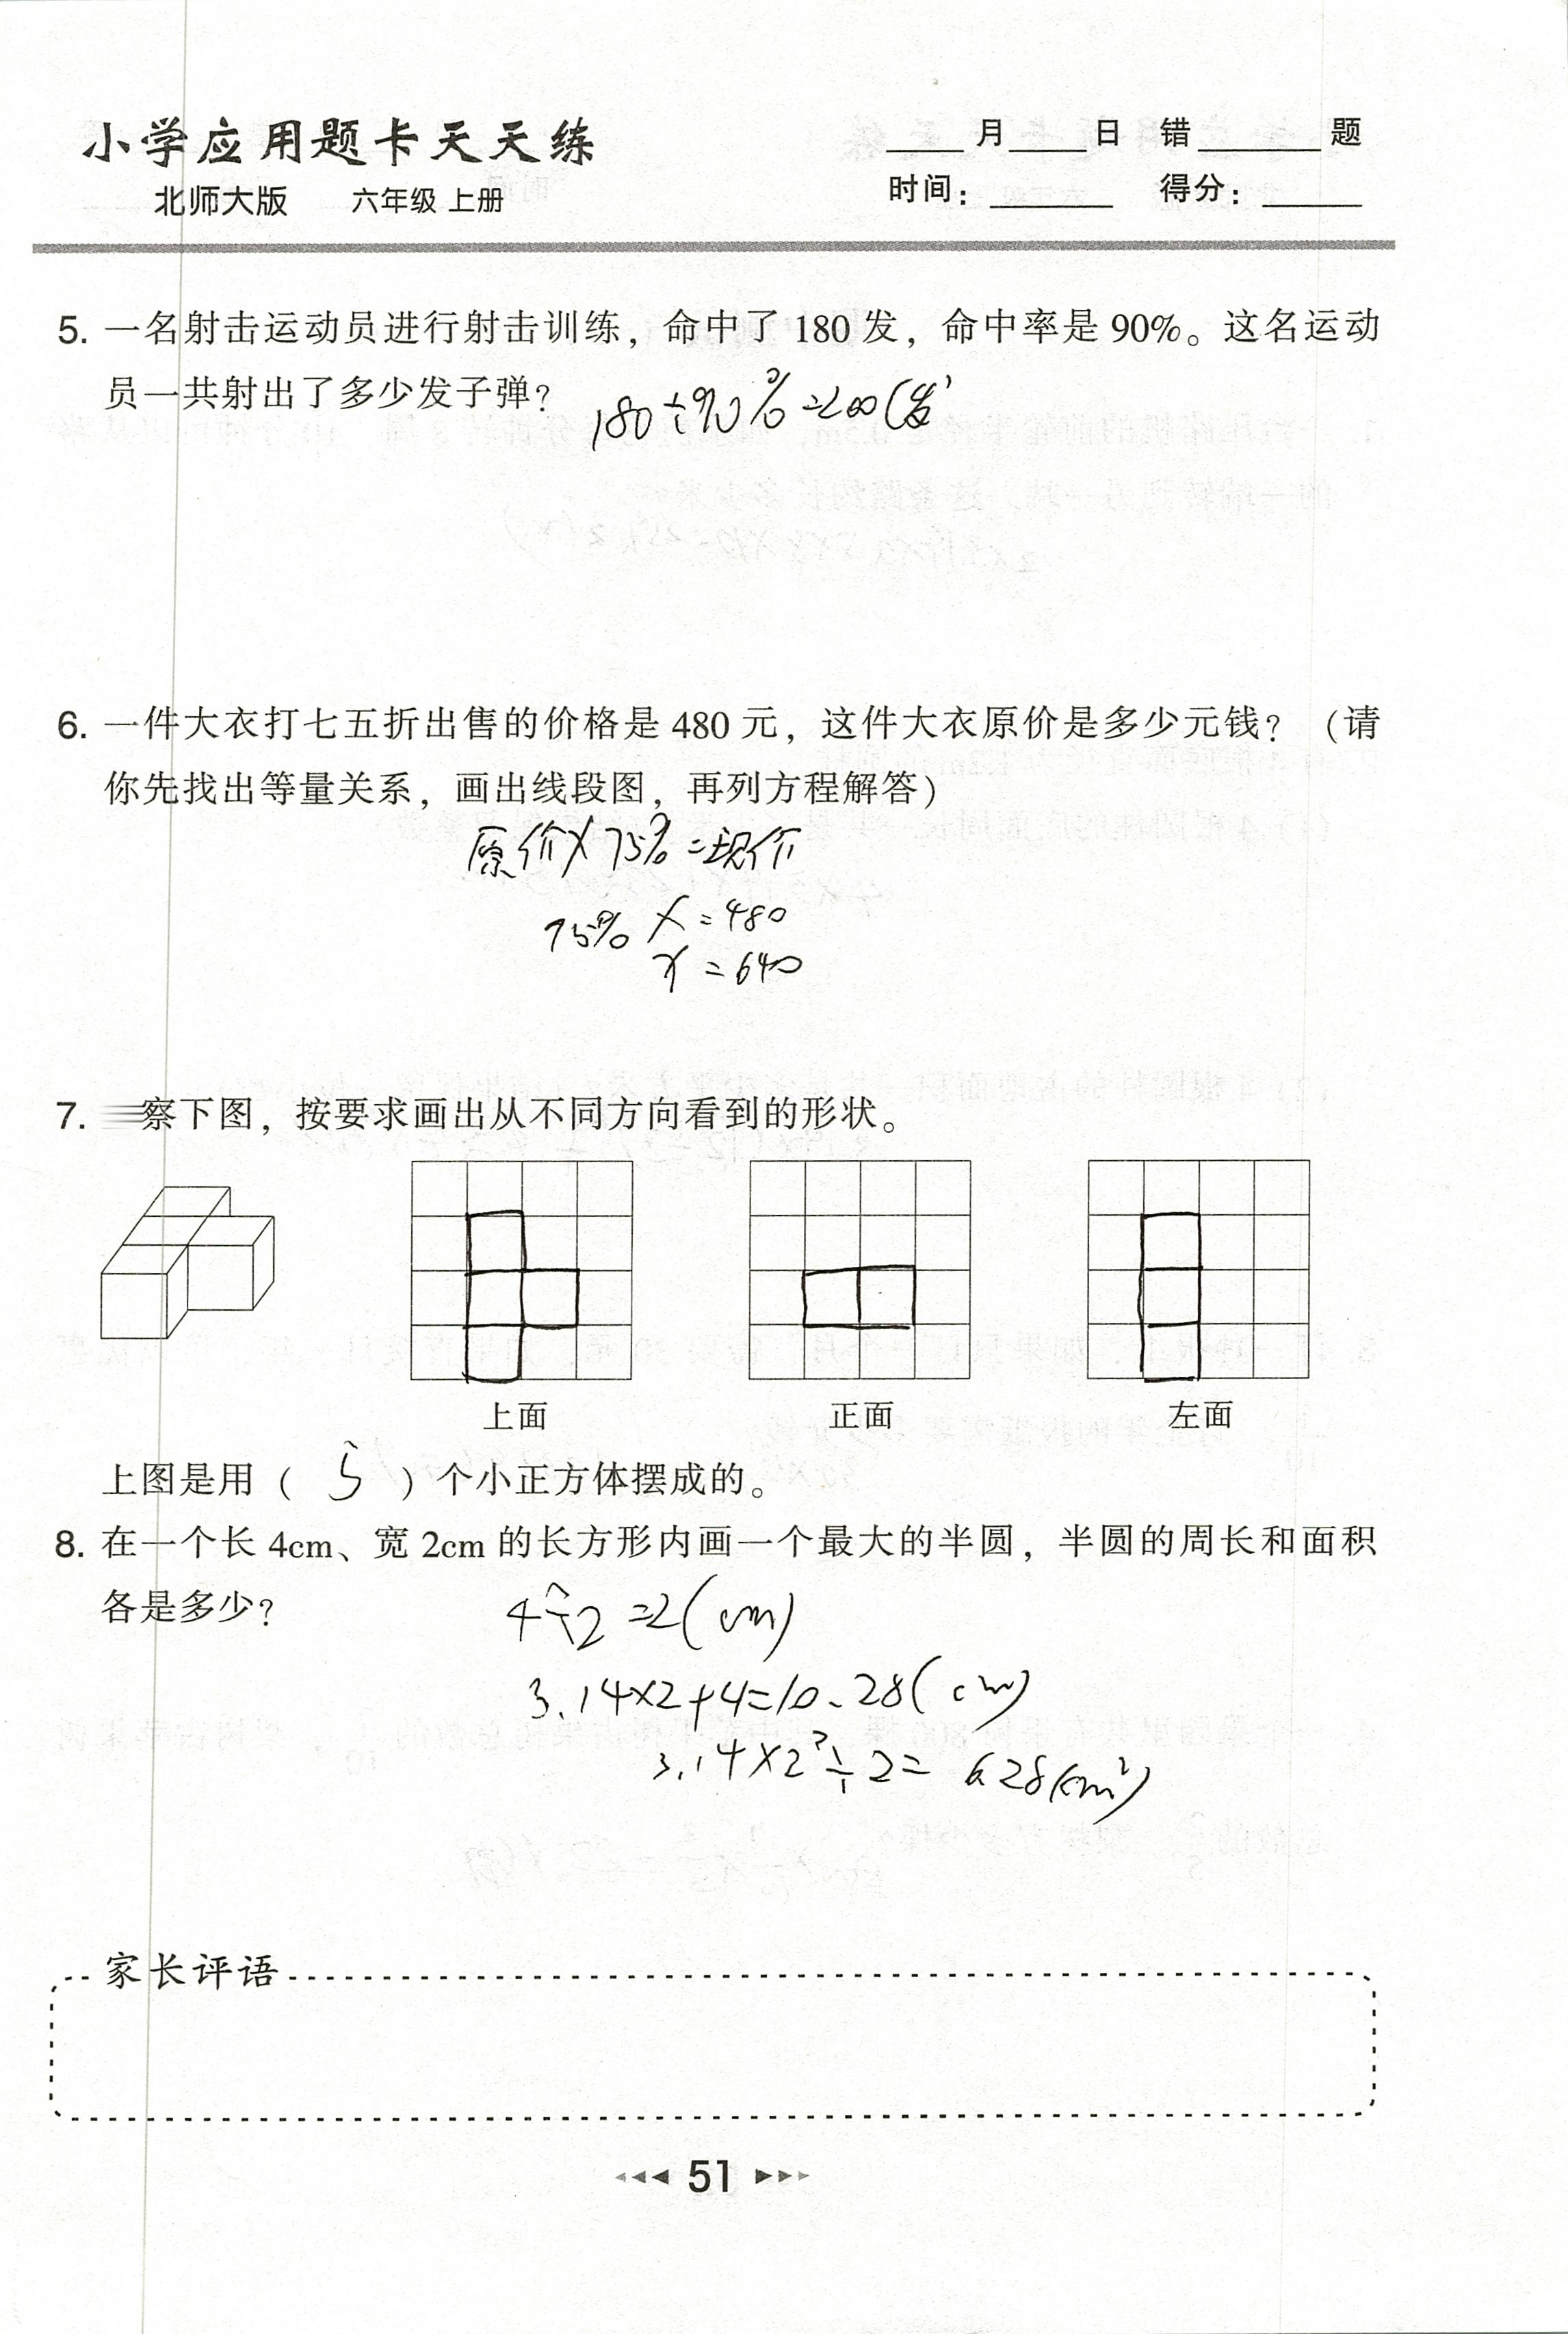 小学应用题卡天天练
北师大版 六年级 上册
____月____日 错______题
时间：______ 得分：_____
5. 一名射击运动员进行射击训练，命中了 180 发，命中率是 90%。这名运动
员一共射出了多少发子弹？ 180÷90%=200(发)
6. 一件大衣打七五折出售的价格是 480 元，这件大衣原价是多少元钱？（请
你先找出等量关系，画出线段图，再列方程解答）
原价×75%=现价
75% x=480
x=640
7. 察下图，按要求画出从不同方向看到的形状。
上面 正面 左面
上图是用（ 5 ）个小正方体摆成的。
8. 在一个长 4cm、宽 2cm 的长方形内画一个最大的半圆，半圆的周长和面积
各是多少？ 4÷2=2(cm)
3.14×2+4=10.28(cm)
3.14×2²÷2= 6.28(cm²)
家长评语
51